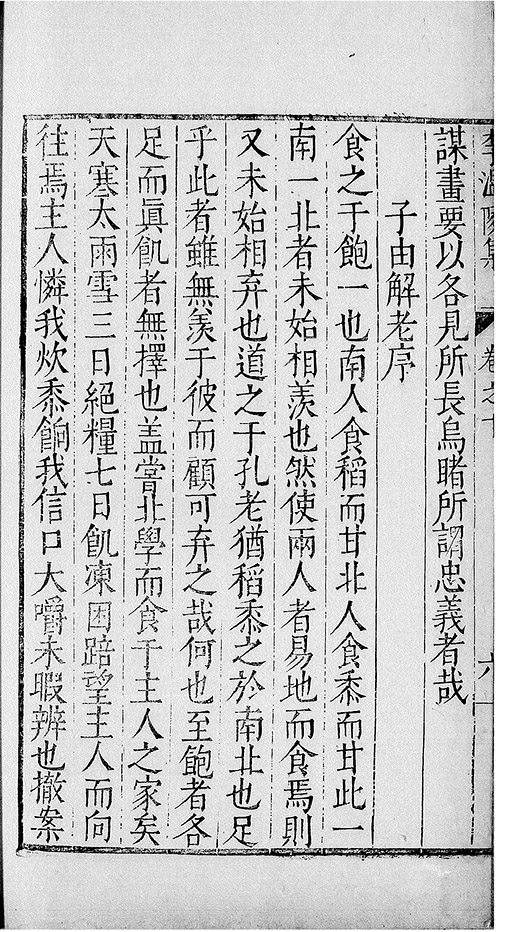 李温陵集 卷之十 六
謀畫要以各見所長烏睹所謂忠義者哉
子由解老序
食之于飽一也南人食稻而甘北人食黍而甘此一
南一北者未始相羨也然使兩人者易地而食焉則
又未始相弃也道之于孔老猶稻黍之於南北也足
乎此者雖無羨于彼而顧可弃之哉何也至飽者各
足而眞飢者無擇也盖嘗北學而食于主人之家矣
天寒太雨雪三日絕糧七日飢凍困踣望主人而向
往焉主人憐我炊黍餉我信口大嚼未暇辨也撤案